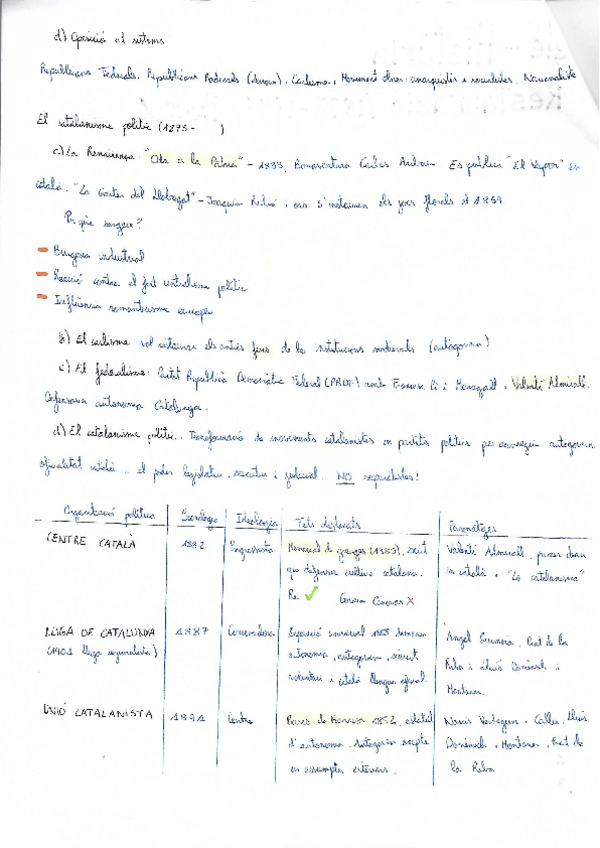 d) Oposició al sistema
Republicans Federals, Republicans Radicals (), Carlisme, Moviment obrer: anarquistes i socialistes, Nacionalista
El catalanisme polític (1875- )
a) La Renaixença: "Oda a la Pàtria" - 1833, Bonaventura Carles Aribau. Es publica "El Vapor" en
català. "Lo Gaiter del Llobregat" - Joaquim Rubió i ors. S'instauren els jocs florals el 1859.
Per què sorgeix?
- Burgesia industrial
- Reacció contra el fort centralisme polític
- Influència romanticisme europeu
b) El carlisme vol restaurar els antics furs de les institucions medievals (autogovern)
c) El federalisme: Partit Republicà Democràtic Federal (PRDF) amb Francesc Pi i Margall i Valentí Almirall.
Defensava autonomia Catalunya.
d) El catalanisme polític. Transformació de moviments catalanistes en partits polítics per aconseguir autogovern
oficialitat català el poder legislatiu, executiu i judicial. NO separatistes!
Organització política Cronologia Ideologia Fets destacats Personatges
CENTRE CATALÀ 1882 Progressista Memorial de greuges (1885), escrit Valentí Almirall, primer diari
que defensa cultura catalana. en català i "Lo catalanisme"
Re ✓ Govern Cánovas X
LLIGA DE CATALUNYA 1887 Conservadora Exposició universal 1888 demanen Àngel Guimerà, Prat de la
(1901 lliga regionalista) autonomia, autogovern, servei Riba i Lluís Domènech i
voluntari i català llengua oficial. Montaner.
UNIÓ CATALANISTA 1891 Centre Bases de Manresa 1892, estatut Narcís Verdaguer i Callís, Lluís
d'autonomia. Autogovern excepte Domènech i Montaner, Prat de
en assumptes exteriors. la Riba